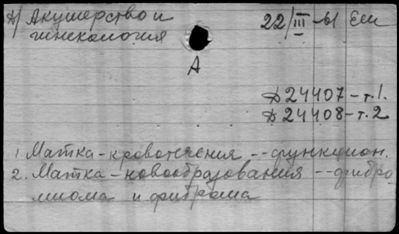 А) Акушерство и 22/III-61 Ест
гинекология
А
Д 24407-т.1.
Д 24408-т.2
1. Матка - кровотечения -- функцион.
2. Матка - новообразования -- фибро
миома и фиброма